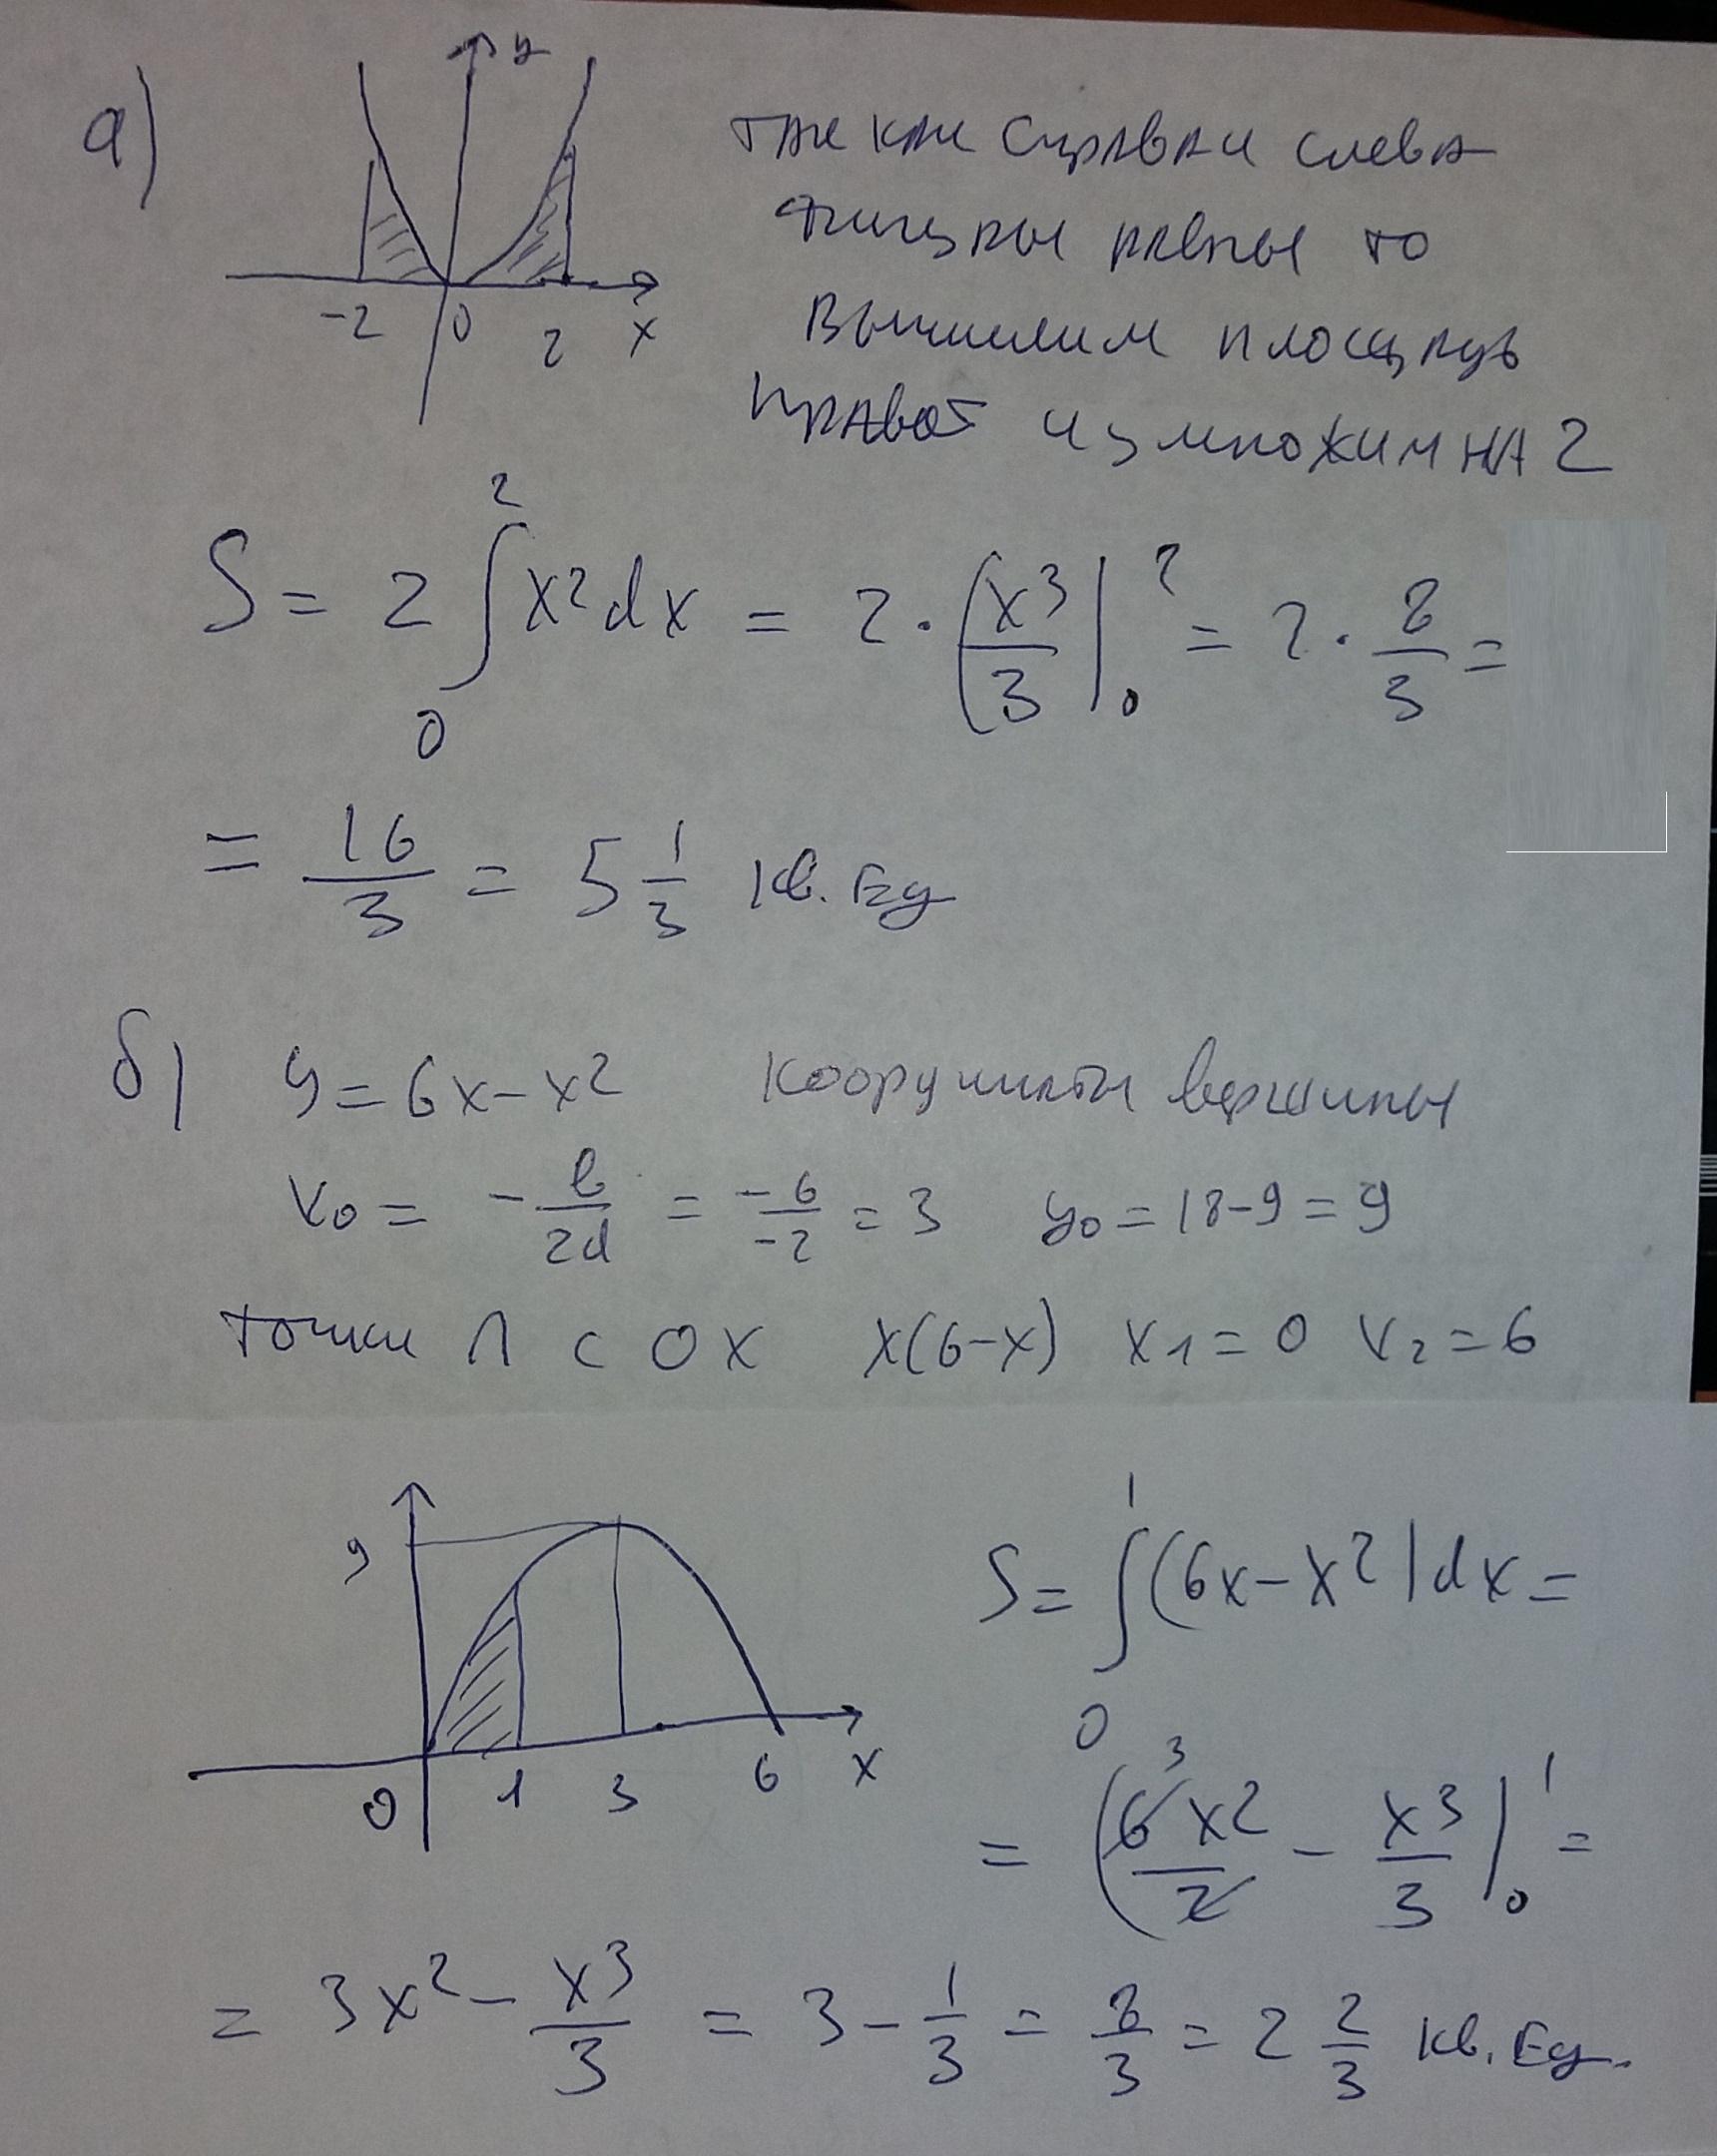 а)
y
-2 0 2 x
так как справа и слева
фигуры равны то
вычислим площадь
правой и умножим на 2
S = 2 ∫₀² x² dx = 2 · (x³/3 |₀² = 2 · 8/3 =
= 16/3 = 5 1/3 кв. Ед
б) y = 6x - x² координаты вершины
x₀ = - b/2a = -6/-2 = 3 y₀ = 18 - 9 = 9
точки Λ с OX x(6-x) x₁ = 0 x₂ = 6
9
0 1 3 6 x
S = ∫₀¹ (6x - x²) dx =
3
= (6x²/2 - x³/3 |₀¹ =
= 3x² - x³/3 = 3 - 1/3 = 8/3 = 2 2/3 кв. Ед.